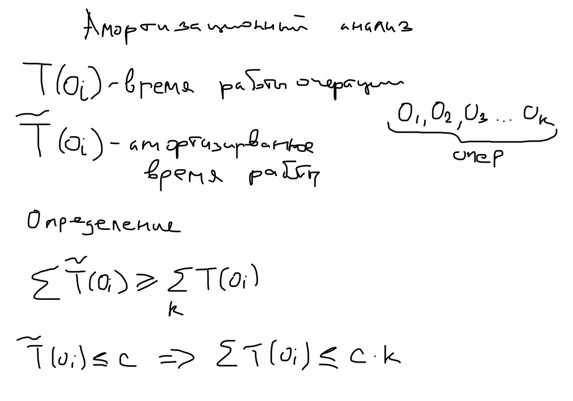 Амортизационный анализ
T(oᵢ) - время работы операции
T̃(oᵢ) - амортизированное
время работы
O₁, O₂, O₃ ... Oₖ
опер
Определение
∑ T̃(oᵢ) ⩾ ∑ₖ T(oᵢ)
T̃(oᵢ) ≤ c => ∑ T(oᵢ) ≤ c · k